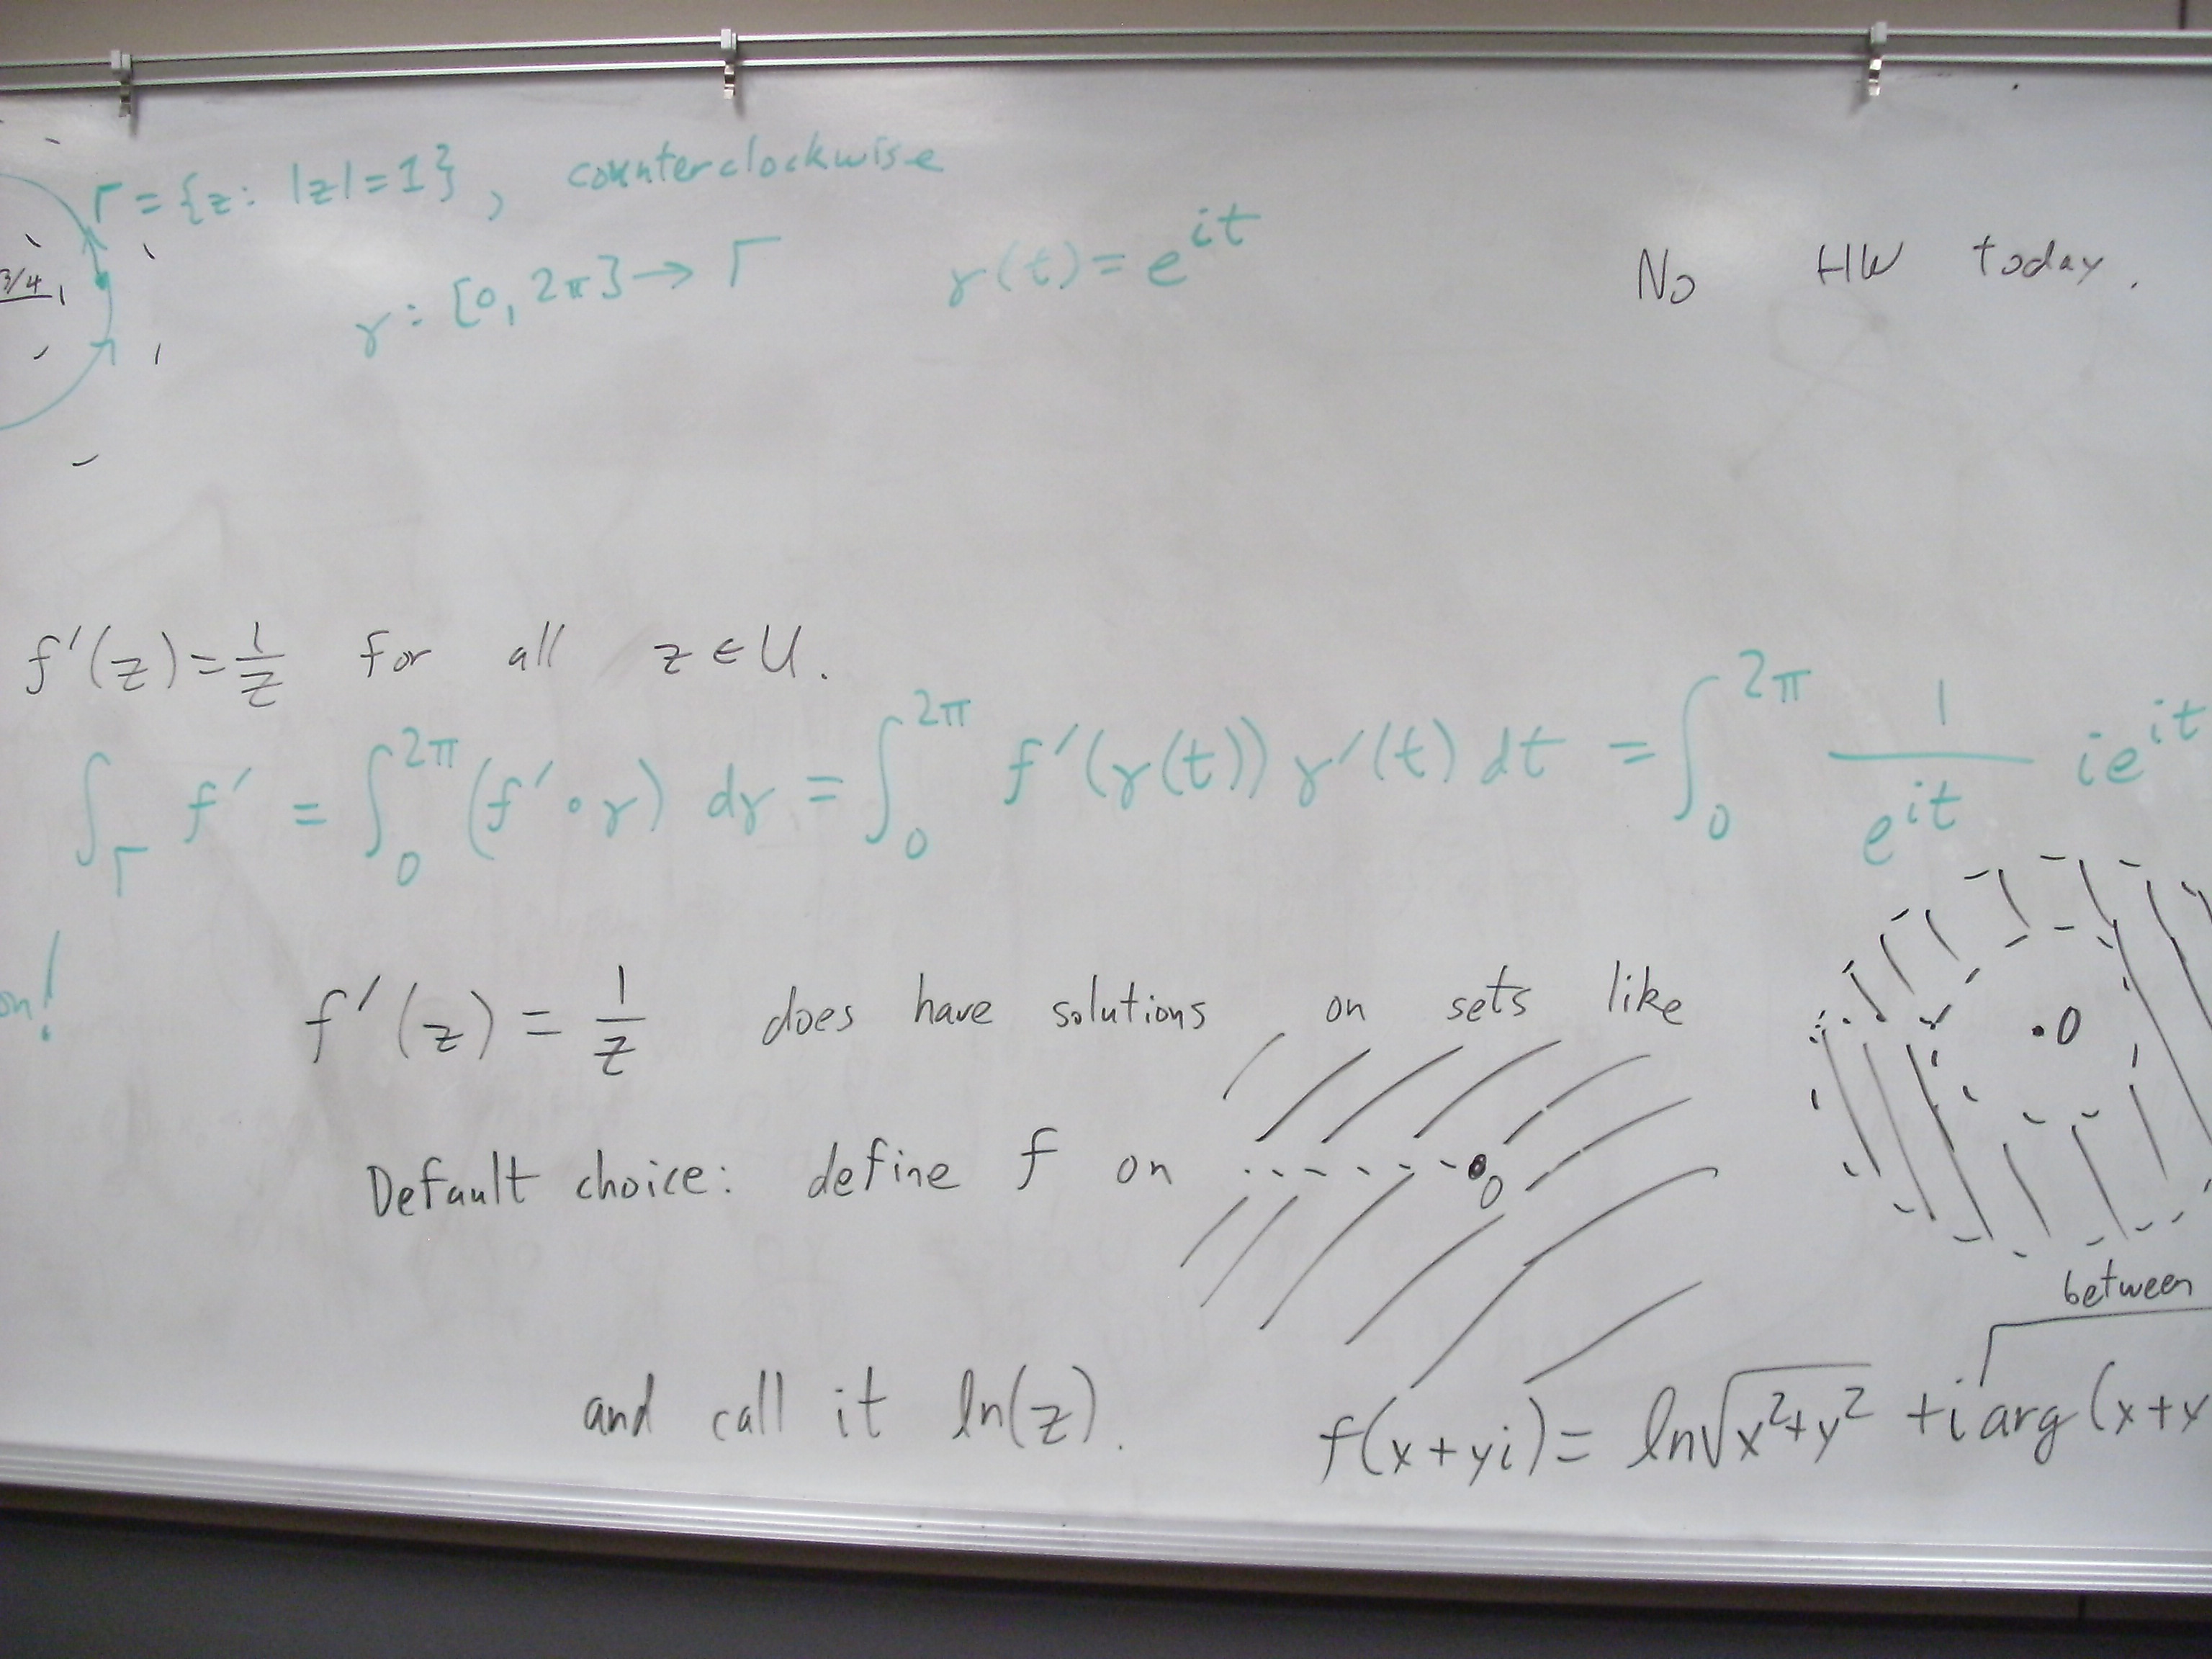 Γ = {z: |z|=1}, counterclockwise
3/4
γ: [0, 2π] → Γ γ(t) = e^{it}
No HW today.
f'(z) = 1/z for all z ∈ U.
∫_Γ f' = ∫_0^{2π} (f'∘γ) dγ = ∫_0^{2π} f'(γ(t)) γ'(t) dt = ∫_0^{2π} 1/e^{it} ie^{it}
on!
f'(z) = 1/z does have solutions on sets like
0
Default choice: define f on
0
between
and call it ln(z). f(x+yi) = ln√(x²+y²) + i arg(x+y